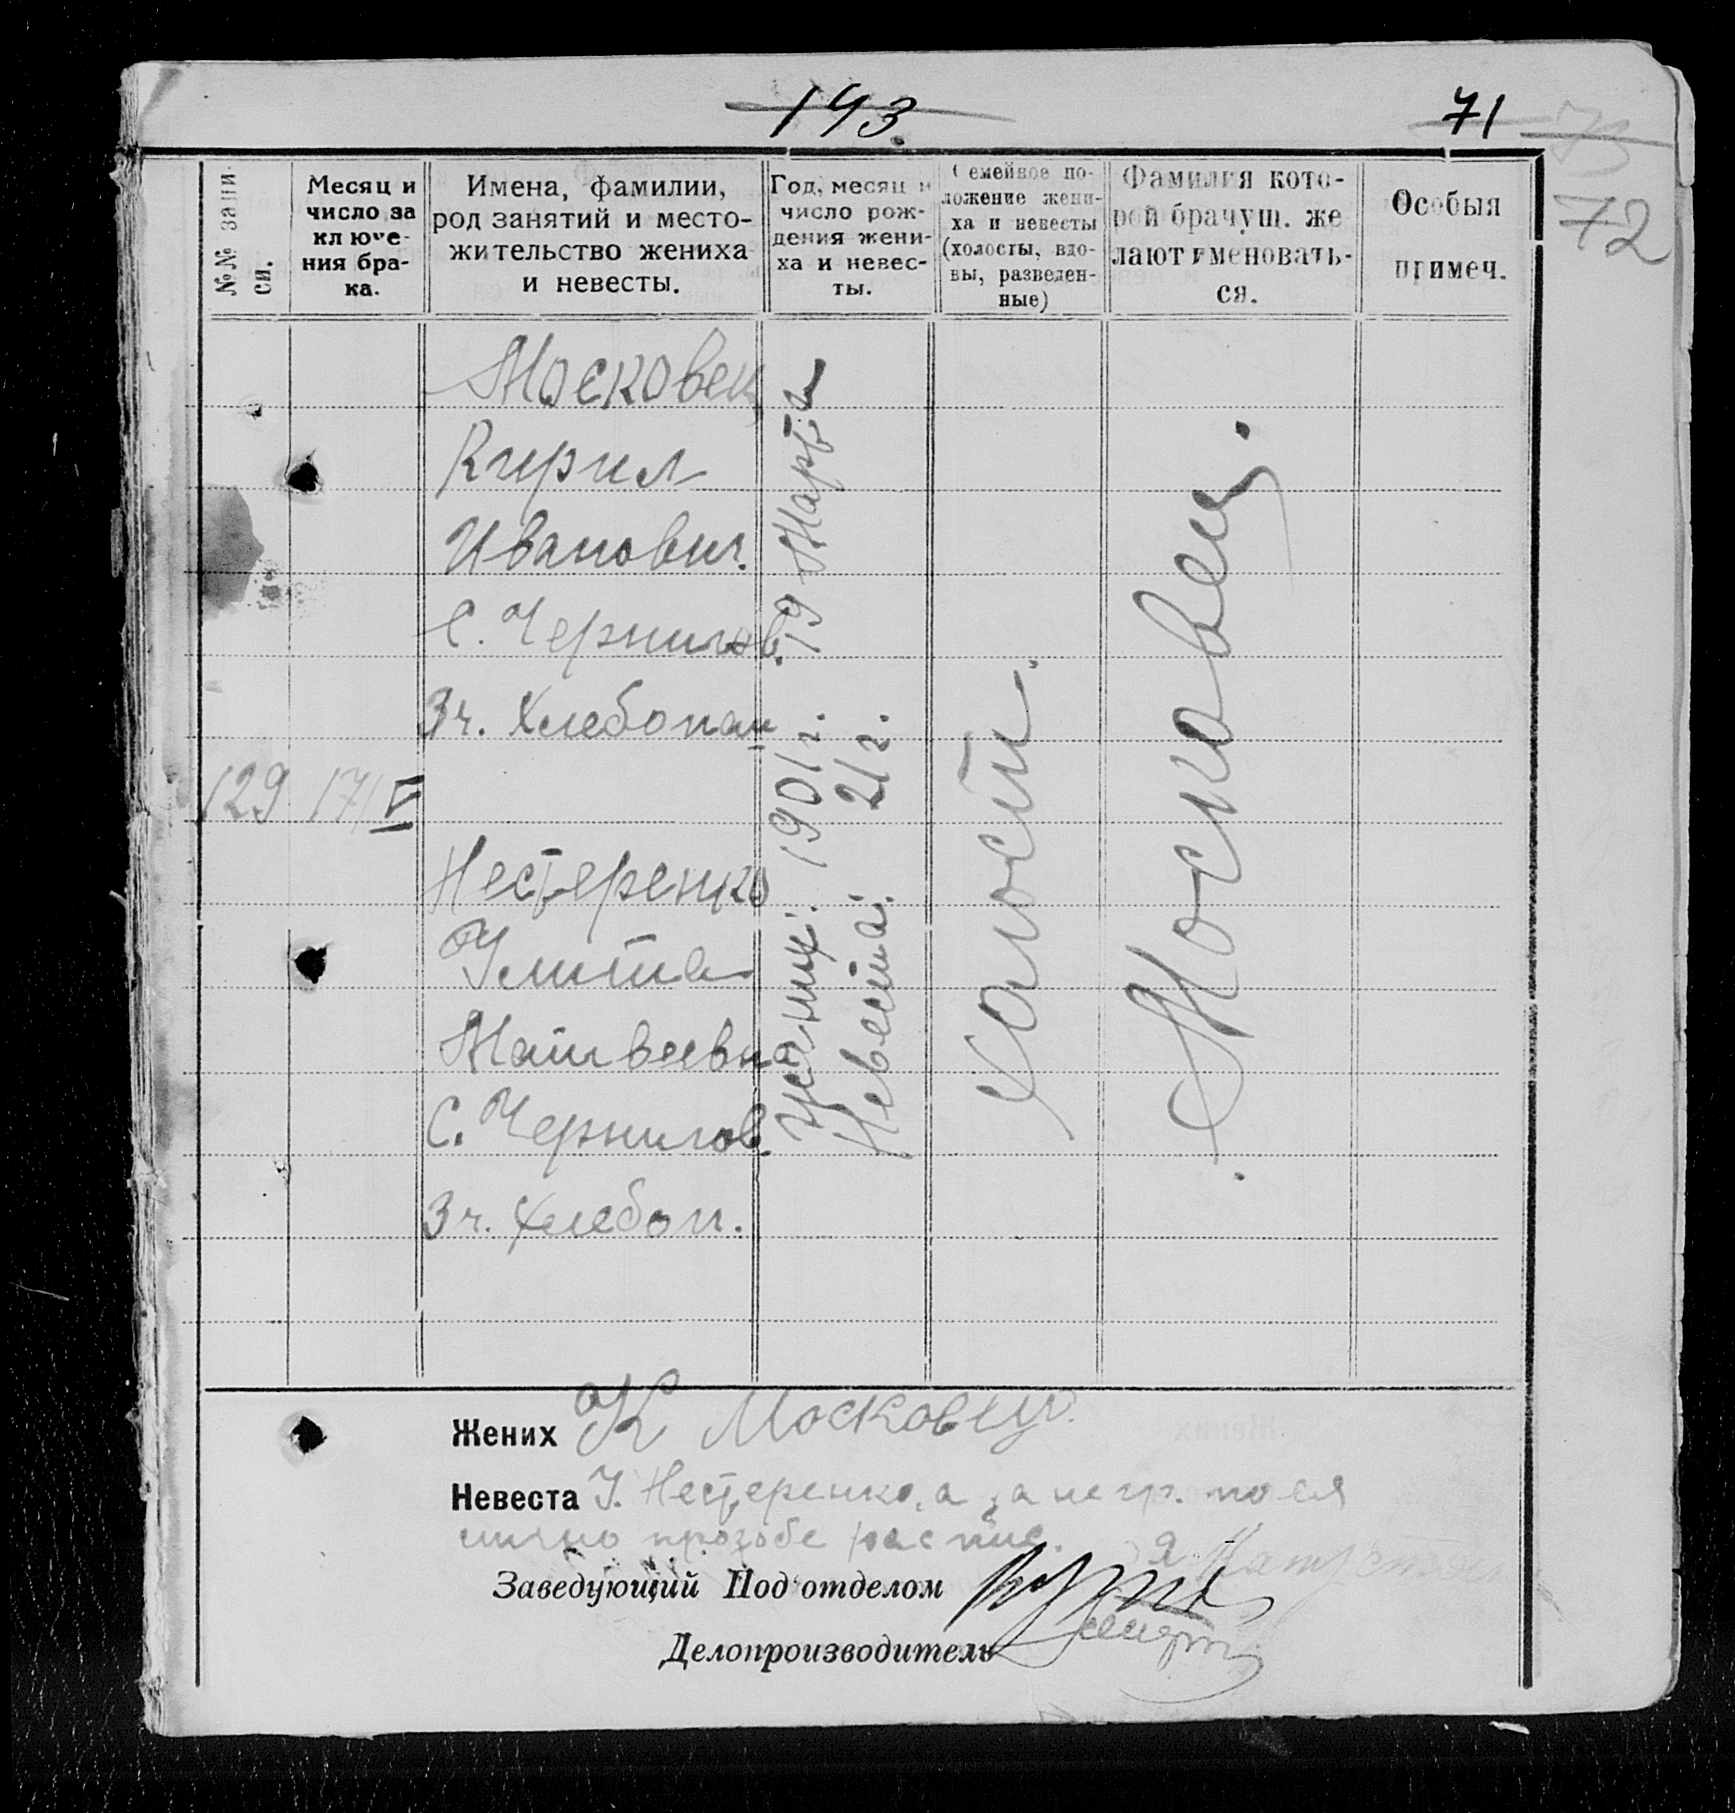 193.
71
73
72
№№ запи-
си.
Месяц и
число за
ключе-
ния бра-
ка.
Имена, фамилии,
род занятий и место-
жительство жениха
и невесты.
Год, месяц и
число рож-
дения жени-
ха и невес-
ты.
Семейное по-
ложение жени-
ха и невесты
(холосты, вдо-
вы, разведен-
ные)
Фамилия кото-
рой брачущ. же
лают именовать-
ся.
Особыя
примеч.
129
17/V
Московец
Кирил
Иванович.
С. Чернигов.
Зч. Хлебопаш
Нестеренко
Улита
Матвеевна
С. Чернигов.
Зч. Хлебоп.
Жених: 1901 г. 19 Марта
Невеста: 21 г.
Холости.
Московец.
Жених К Московец
Невеста У. Нестеренко, а за негр. по ея
лично прозбе распис.
Заведующий Подотделом
Делопроизводитель